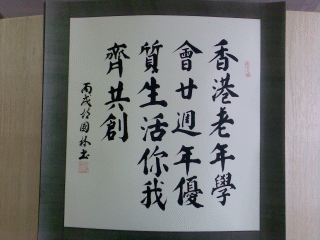 香港老年學
會廿週年優
質生活你我
齊共創
丙戌時國林书